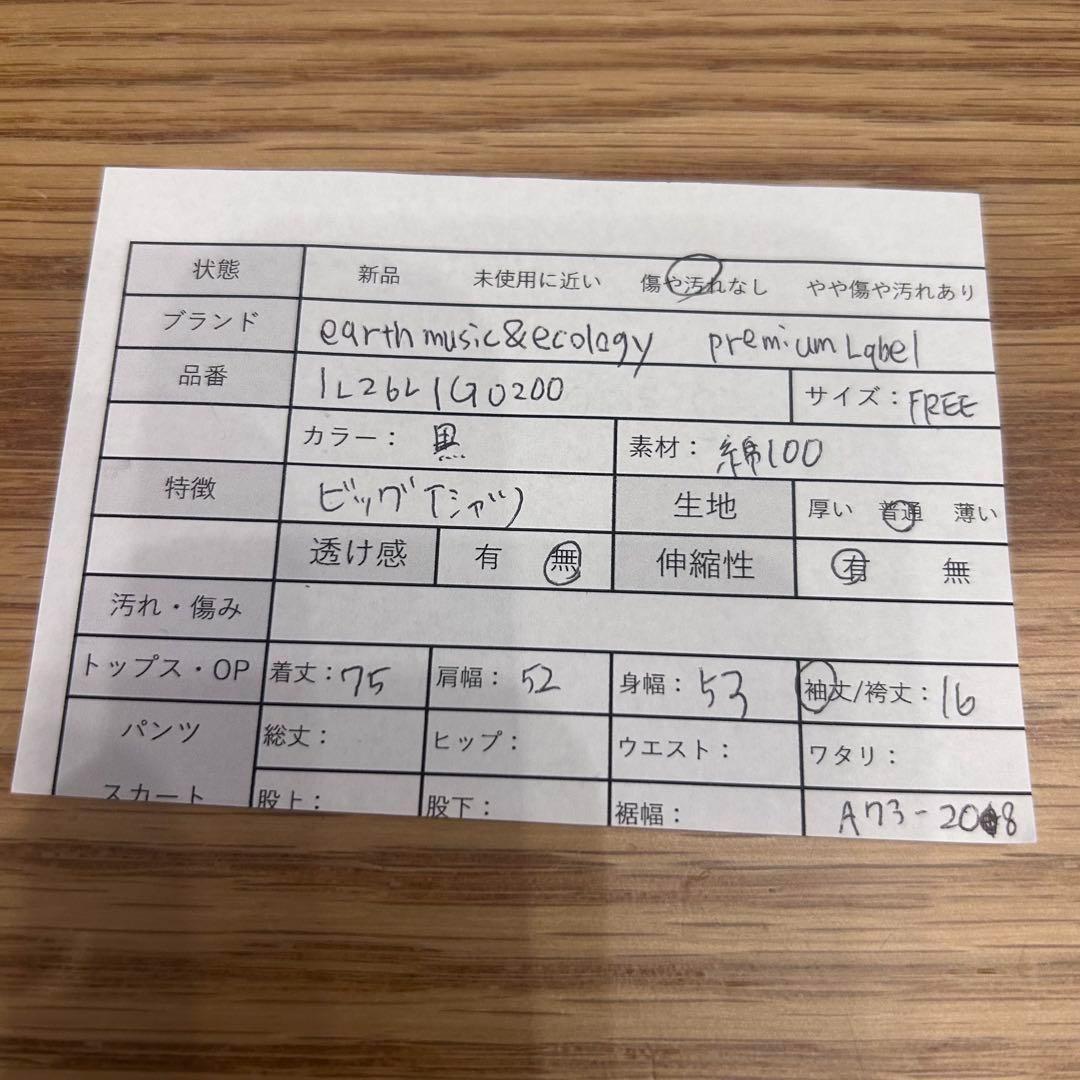 状態 新品 未使用に近い 傷や汚れなし やや傷や汚れあり
ブランド earth music&ecology premium Label
品番 1L26L1G0200 サイズ：FREE
カラー： 黒 素材：綿100
特徴 ビッグTシャツ 生地 厚い 普通 薄い
透け感 有 無 伸縮性 有 無
汚れ・傷み
トップス・OP 着丈：75 肩幅：52 身幅：53 袖丈/袴丈：16
パンツ 総丈： ヒップ： ウエスト： ワタリ：
スカート 股上： 股下： 裾幅： A73-208